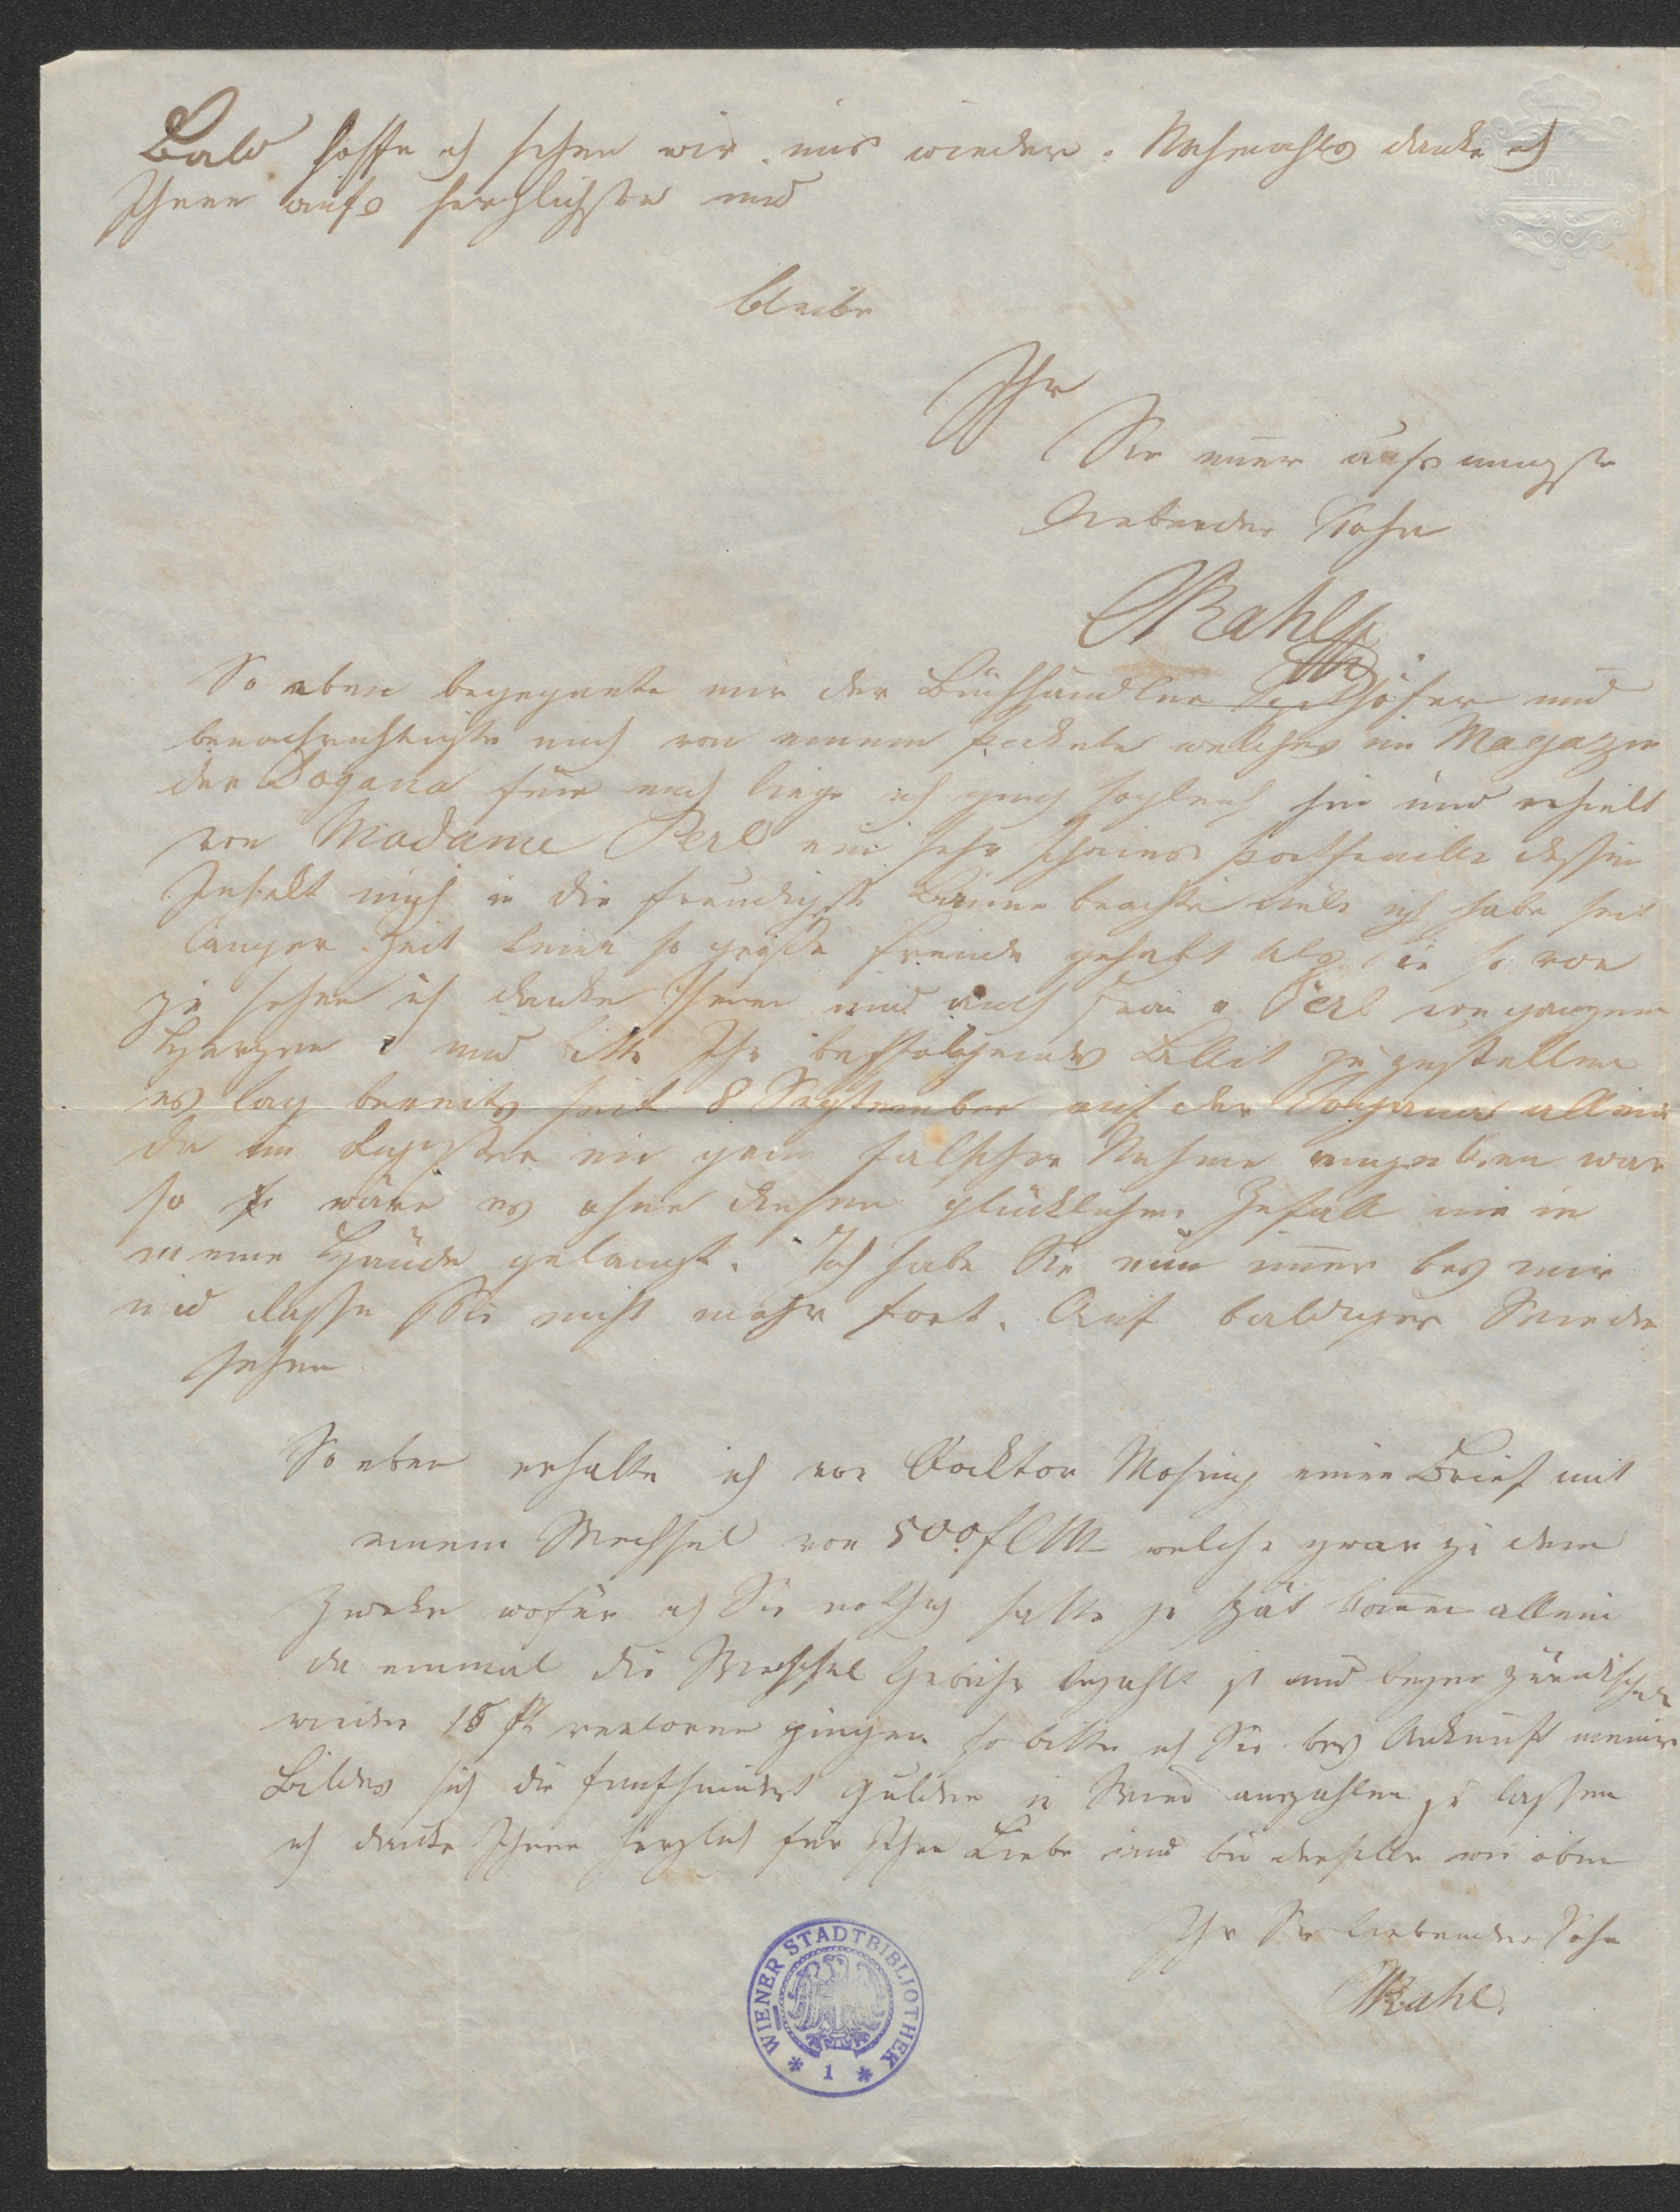 Bald hoffe ich sehen wir uns wieder. Nochmahls danke ich
Ihnen aufs herzlichste und
bleibe
Ihr
Sie immer aufs innigste
liebender Sohn
CRahl
So eben begegnete mir der Buchhändler höfer und
benachrichtigte mich von einem Pakete welches im Magazin
der Dogana für mich liege ich ging sogleich hin und erhielt
von Madame Perl ein sehr schönes Portfeuille dessen
Inhalt mich in die freudigste Laune brachte ich habe seit
langer Zeit keine so große Freude gehabt als Sie so von
zu sehen ich danke Ihnen und auch Frau v. Perl von ganzem
Herzen und bitte Ihr beyfolgendes Billet zuzustellen
es lag bereits seit 8 September auf der Dogana allein
da im Register ein ganz falscher Nahme angegeben war
so wäre es ohne diesen glücklichen Zufall nie in
meine Hände gelangt. Ich habe Sie nun immer bey mir
und lasse Sie nicht mehr fort. Auf baldiges Wieder
sehen
So eben erhalte ich von Docktor Mosing einen Brief mit
einem Wechsel von 500 fl CM welche zwar zu dem
Zwecke wofür ich Sie nothig hatte zu spät kommen allein
da einmal die Wechsel Gebühr bezahlt ist und beym zurückschicken
wieder 15 fl verloren gingen so bitte ich Sie bey Ankunft meines
Bildes sich die fünfhundert Gulden in Wien auszahlen zu lassen
ich danke Ihnen herzlich für Ihre Liebe und bin derselbe wie oben
Ihr Sie liebender Sohn
CRahl.
WIENER STADTBIBLIOTHEK
* 1 *